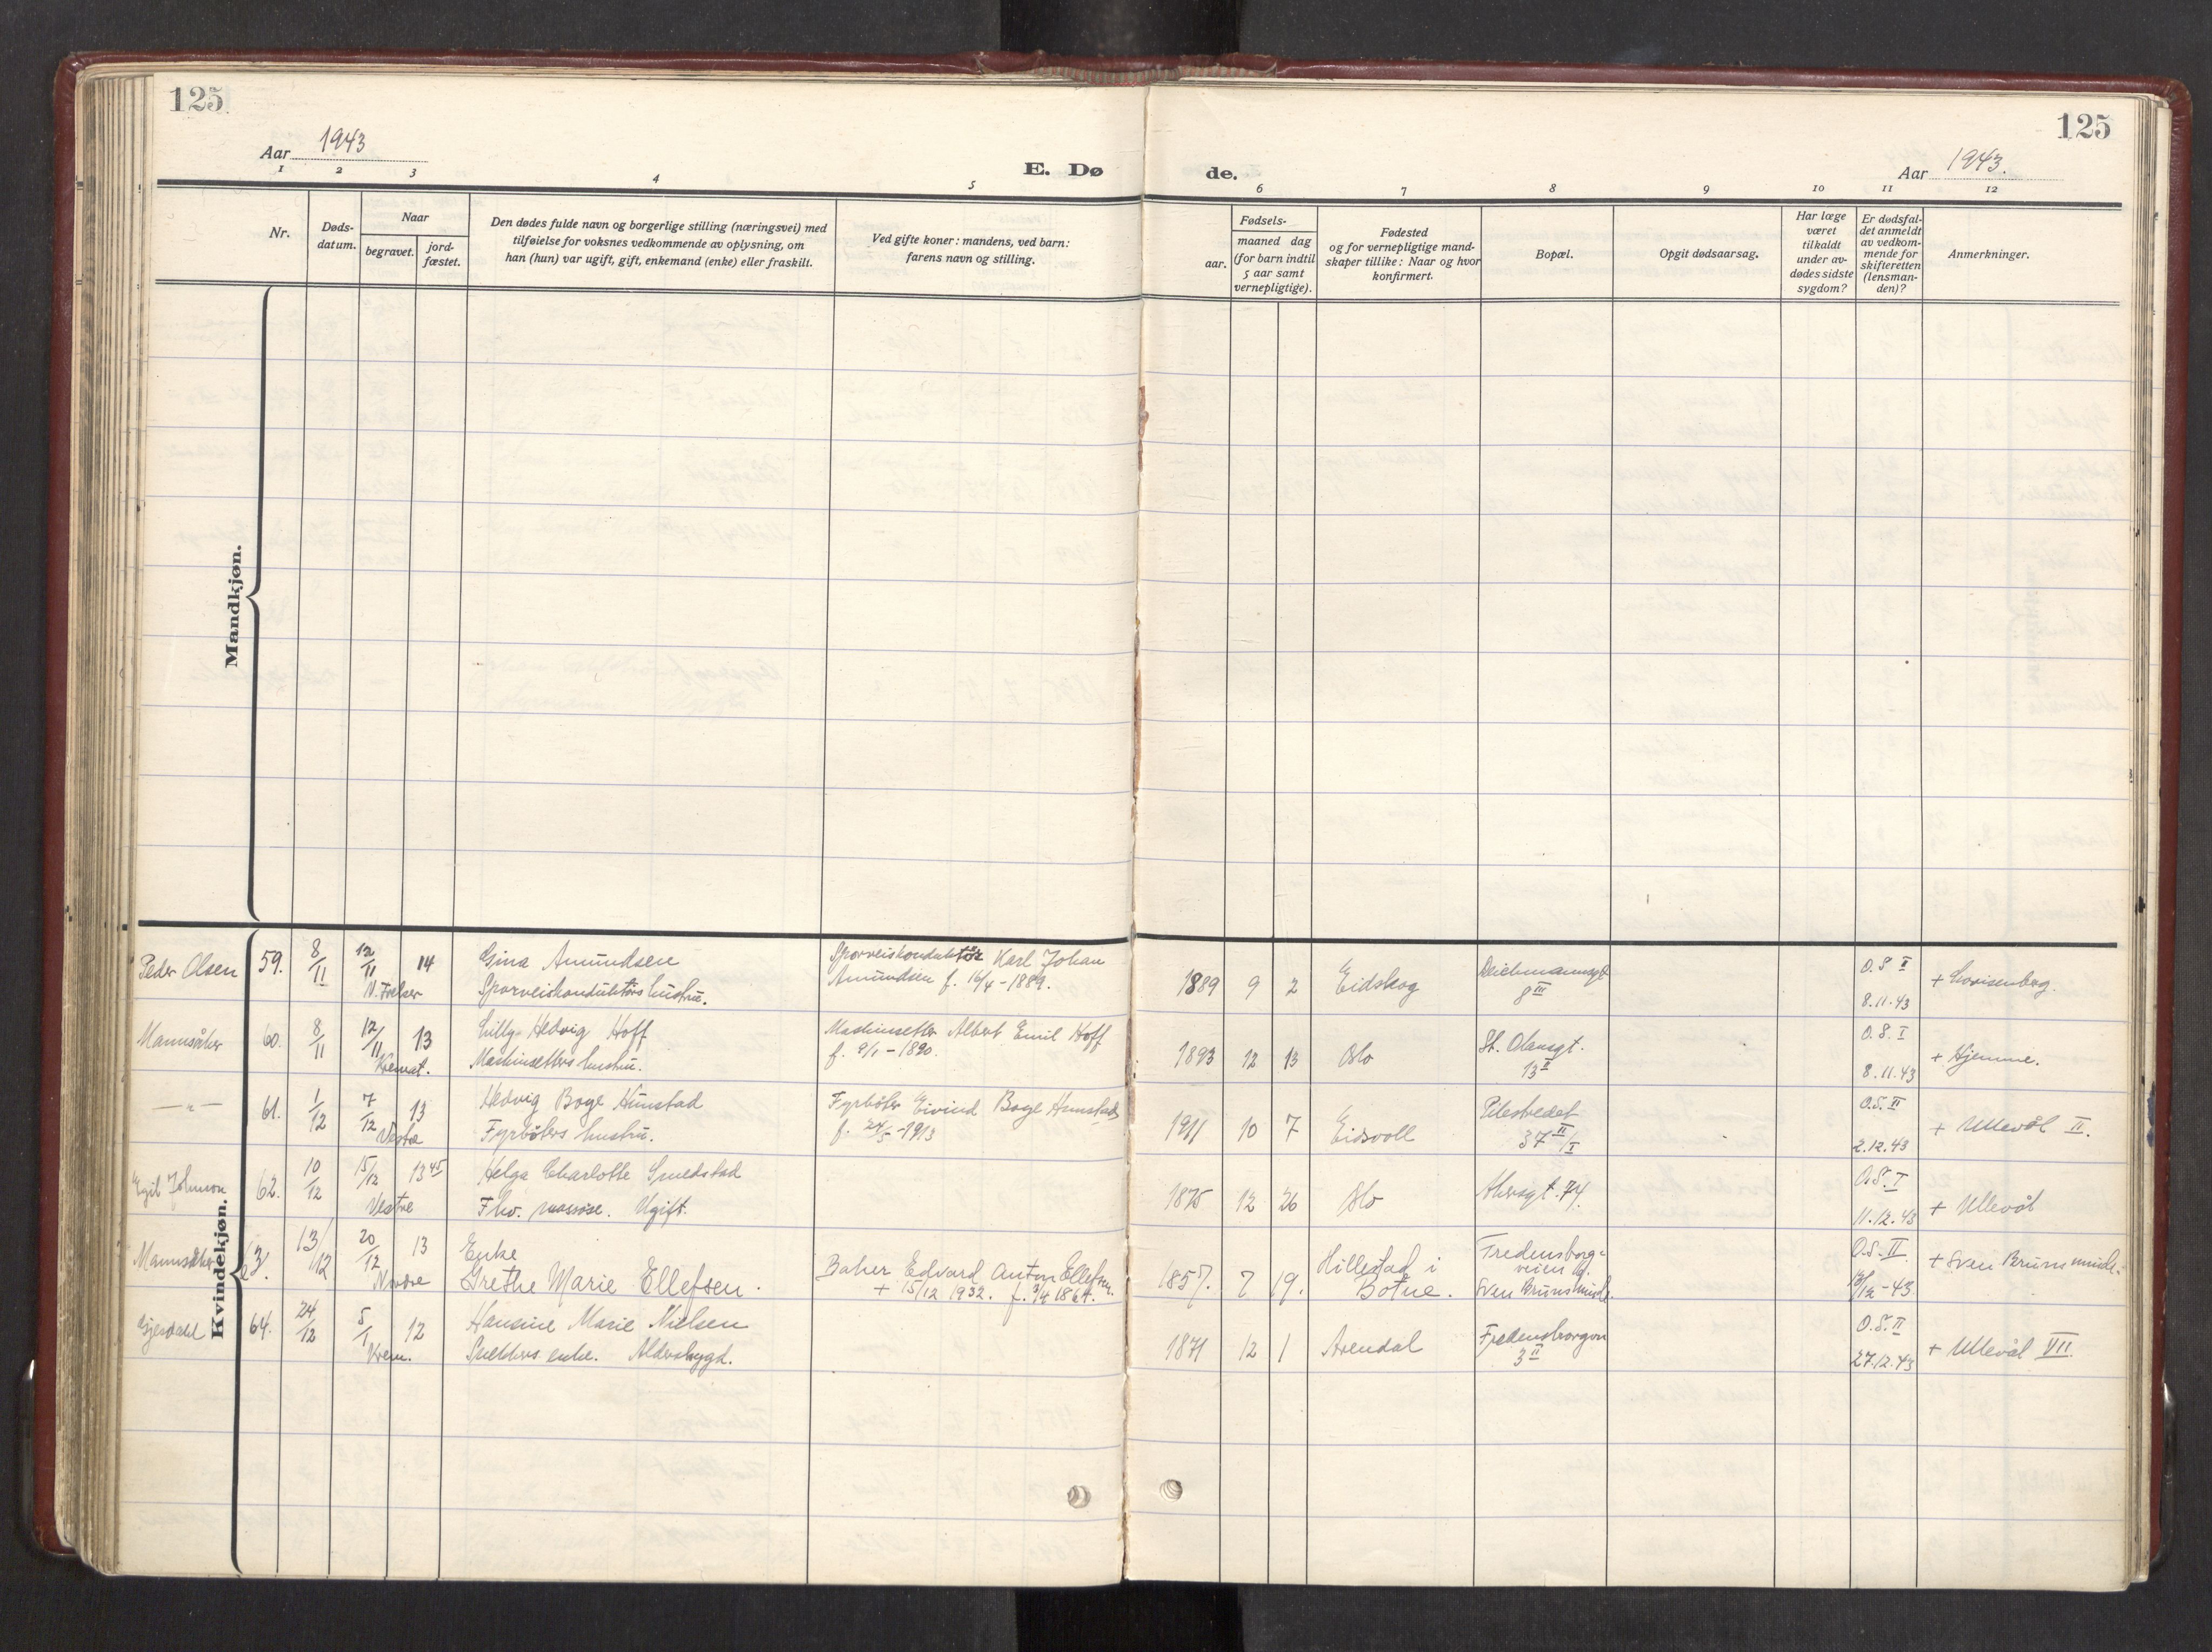 125
125
Aar 1943
E. Dø
de.
Aar 1943.
1 2 3 4 5 6 7 8 9 10 11 12
Nr.
Døds-
datum.
Naar
begravet.
jord-
fæstet.
Den dødes fulde navn og borgerlige stilling (næringsvei) med
tilføielse for voksnes vedkommende av oplysning, om
han (hun) var ugift, gift, enkemand (enke) eller fraskilt.
Ved gifte koner: mandens, ved barn:
farens navn og stilling.
Fødsels-
aar.
maaned dag
(for barn indtil
5 aar samt
vernepligtige).
Fødested
og for vernepligtige mand-
skaper tillike: Naar og hvor
konfirmert.
Bopæl.
Opgit dødsaarsag.
Har læge
været
tilkaldt
under av-
dødes sidste
sygdom?
Er dødsfal-
det anmeldt
av vedkom-
mende for
skifteretten
(lensman-
den)?
Anmerkninger.
Mandkjøn.
Kvindekjøn.
Peder Olsen 59. 8/11 12/11 14 Gina Amundsen Sporveiskonduktör Karl Johan 1889 9 2 Eidskog Deichmannsgt O.S I + Lovisenberg.
N. Frelser Sporveiskonduktörs hustru. Amundsen f. 16/4-1889. 8 III 8.11.43
Mannsåker 60. 8/11 12/11 13 Lilly Hedvig Hoff Maskinsetter Albert Emil Hoff 1893 12 13 Oslo St. Olavsgt. O.S. I + Hjemme.
Kremat. Maskinsetters hustru. f. 9/1-1890. 13 I 8.11.43
—"— 61. 1/12 7/12 13 Hedvig Boge Hunstad Fyrböter Eivind Boge Hunstad 1911 10 7 Eidsvoll Pilestredet O.S. II + Ullevål II.
Vestre Fyrböters hustru. f. 24/5-1913 37 II/I 2.12.43
Egil Johnson 62. 10/12 15/12 13 45 Helga Charlotte Smedstad 1875 12 26 Oslo Akersgt. 74. O.S. I + Ullevål
Vestre Fhv. massøse. Ugift. 11.12.43
Mannsåker 63. 13/12 20/12 13 Enke Baker Edvard Anton Ellefsen. 1857. 7 19. Hillestad i Fredensborg- O.S. II. + Sven Bruns minde.
Nordre Grethe Marie Ellefsen. + 15/12 1932. f. 3/4 1864. Botne. veien
Sven Bruns minde. /12-43
Gjerdahl 64. 24/12 5/1 12 Hansine Marie Nielsen 1871 12 1 Arendal Fredensborgvn O.S. II + Ullevål VII.
Krem. enke. Alderstrygd. 3 II 27.12.43